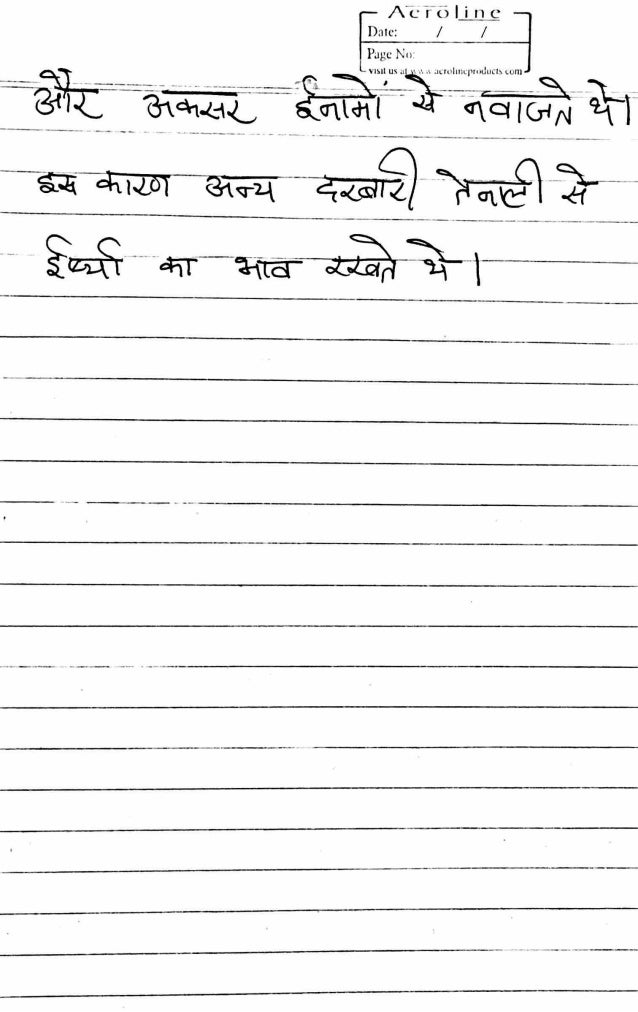 Acroline
Date: / /
Page No:
visit us at www.acrolineproducts.com
और अकसर ईनामों से नवाजते थे।
इस कारण अन्य दरबारी तेनाली से
ईर्ष्या का भाव रखते थे।